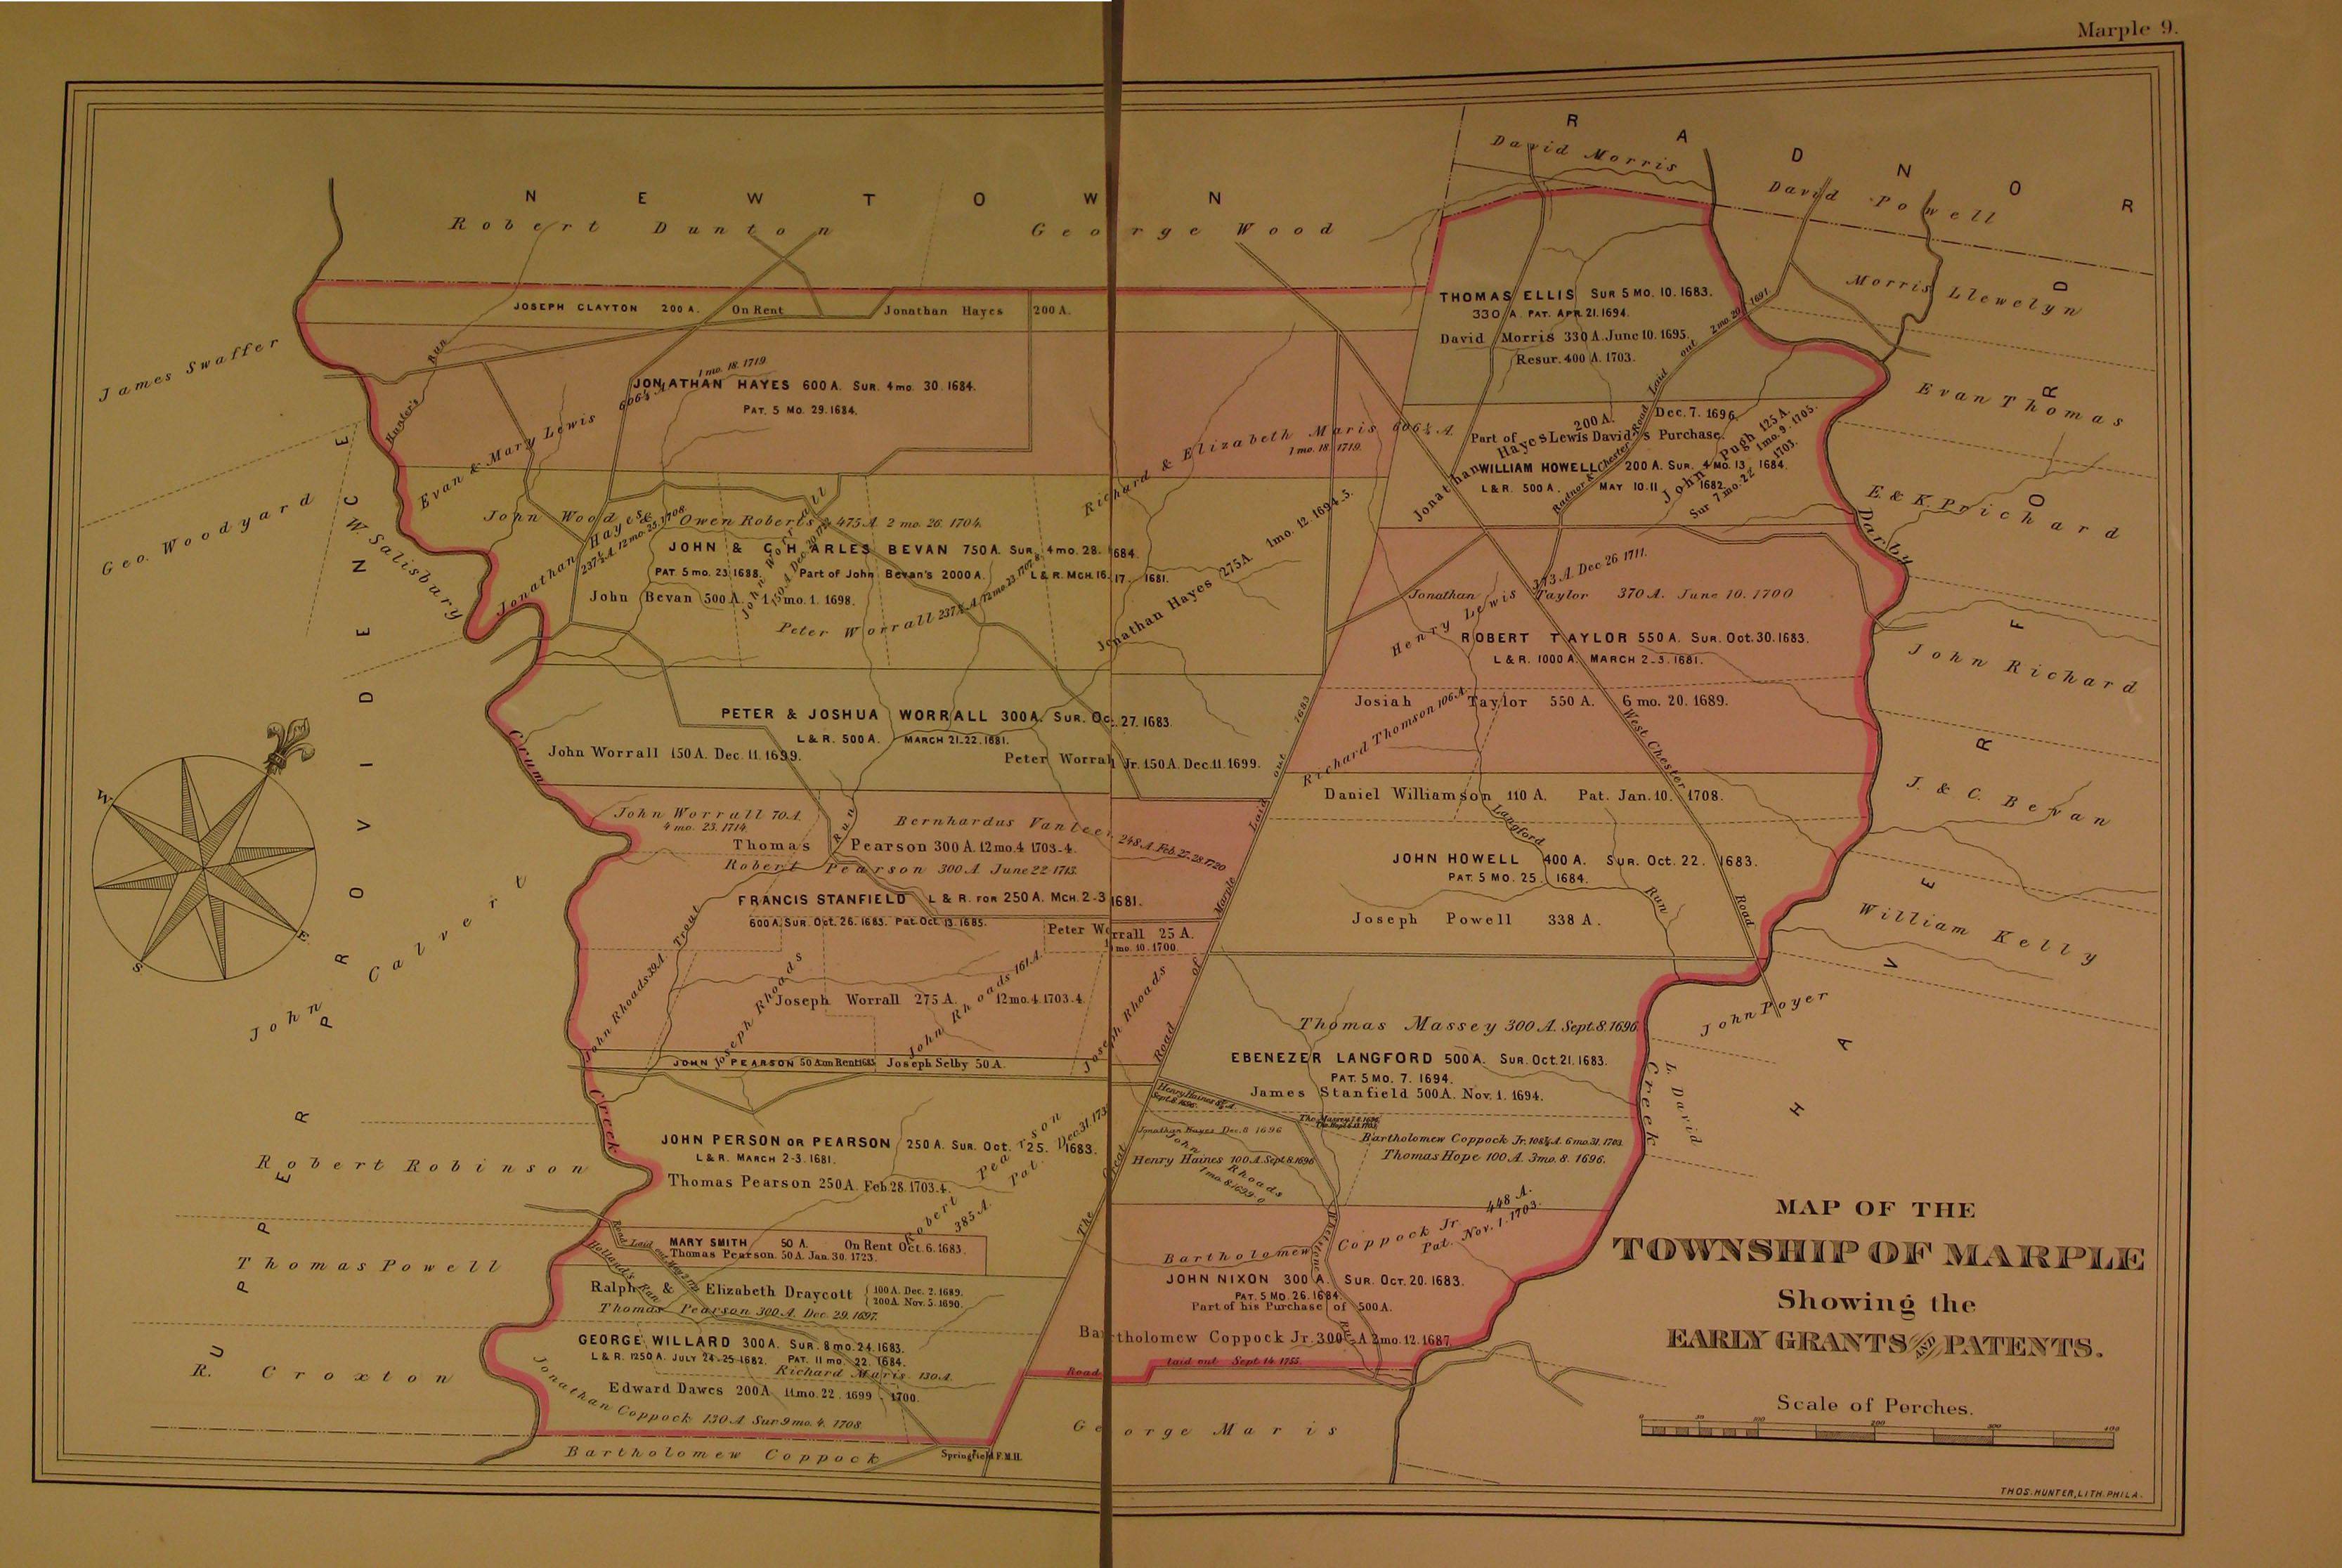 Marple 9.
RADNOR
David Morris
David Powell
NEWTOWN
Robert Dunton
George Wood
Morris Llewelyn
JOSEPH CLAYTON 200 A. On Rent Jonathan Hayes 200 A.
THOMAS ELLIS SUR 5 MO. 10. 1683.
330 A. PAT. APR. 21. 1694.
David Morris 330 A. June 10. 1695.
Resur. 400 A. 1703.
2 mo. 20 1691.
Radnor & Chester Road Laid out
James Swaffer
Hunter's Run
1 mo. 18. 1719.
606¼ A.
JONATHAN HAYES 600 A. SUR. 4 mo. 30. 1684.
PAT. 5 MO. 29. 1684.
Evan & Mary Lewis
Richard & Elizabeth Maris 606¼ A.
1 mo. 18. 1719.
Evan Thomas
200 A. Dec. 7. 1696.
Part of Lewis David's Purchase.
Jonathan Hayes
WILLIAM HOWELL 200 A. SUR. 4 MO. 13. 1684.
L & R. 500 A. MAY 10.11 1682.
John Pugh 125 A.
1 mo. 9. 1705.
Sur 7 mo. 22 1703.
E. & K. Prichard
Geo. Woodyard
W. Salisbury
John Wood & Owen Roberts 475 A. 2 mo. 26. 1704.
Jonathan Hayes
237½ A. 12 mo. 25. 1708.
JOHN & CHARLES BEVAN 750 A. SUR. 4 mo. 28. 1684.
PAT 5 mo. 23. 1688. Part of John Bevan's 2000 A. L & R. MCH. 16. 17. 1681.
John Bevan 500 A. 1 mo. 1. 1698.
John Worrall
150 A. Dec. 20
Peter Worrall 237½ A. 12 mo. 23. 1707-8
Jonathan Hayes 275 A. 1 mo. 12. 1694.5.
Darby
HAVERFORD
373 A. Dec 26 1711.
Henry Lewis
Jonathan Taylor 370 A. June 10. 1700
ROBERT TAYLOR 550 A. SUR. OCT. 30. 1683.
L & R. 1000 A. MARCH 2-3. 1681.
John Richard
Josiah Taylor 550 A. 6 mo. 20. 1689.
Richard Thomson 106 A.
UPPER PROVIDENCE
PETER & JOSHUA WORRALL 300 A. SUR. Oct. 27. 1683.
L & R. 500 A. MARCH 21-22. 1681.
John Worrall 150 A. Dec. 11. 1699.
Peter Worrall Jr. 150 A. Dec. 11. 1699.
West Chester Road
J. & C. Bevan
Crum Creek
The Great Road of Marple Laid out 1683
Daniel Williamson 110 A. Pat. Jan. 10. 1708.
Langford Run
John Worrall 70 A.
4 mo. 23. 1714.
Bernhardus Vanleer 248 A. Feb. 27-28. 1720
Thomas Pearson 300 A. 12 mo. 4 1703-4.
Robert Pearson 300 A. June 22 1713.
JOHN HOWELL 400 A. SUR. OCT. 22. 1683.
PAT. 5 MO. 25. 1684.
FRANCIS STANFIELD L & R. FOR 250 A. MCH. 2-3 1681.
600 A. SUR. Oct. 26. 1683. Pat. Oct. 13. 1685.
Joseph Powell 338 A.
William Kelly
Peter Worrall 25 A.
mo. 10. 1700.
W
E
S
John Calvert
Trout Run
John Rhoads 39 A.
Joseph Rhoads
Joseph Worrall 275 A. 12 mo. 4. 1703-4.
John Rhoads 161 A.
Joseph Rhoads
John Poyer
Thomas Massey 300 A. Sept. 8. 1696.
EBENEZER LANGFORD 500 A. SUR. OCT. 21. 1683.
PAT. 5 MO. 7. 1694.
James Stanfield 500 A. Nov. 1. 1694.
L. David
Creek
JOHN PEARSON 50 A. on Rent 1683 Joseph Selby 50 A.
Henry Haines
Sept. 8. 1696.
Jonathan Hayes Dec. 8 1696
Bartholomew Coppock Jr. 108¼ A. 6 mo. 31. 1703.
Henry Haines 100 A. Sept 8. 1696
Thomas Hope 100 A. 3 mo. 8. 1696.
John Rhoads
1 mo. 8. 1699-0
JOHN PERSON OR PEARSON 250 A. SUR. Oct. 25. 1683.
L & R. MARCH 2-3. 1681.
Thomas Pearson 250 A. Feb. 28. 1703-4.
Robert Pearson
385 A. Pat. Dec 31. 173
Robert Robinson
448 A.
Bartholomew Coppock Jr.
Pat. Nov. 1. 1703.
MARY SMITH 50 A. On Rent Oct. 6. 1683.
Thomas Pearson. 50 A. Jan. 30. 1723.
Thomas Powell
Holland's Run
Ralph & Elizabeth Draycott { 100 A. Dec. 2. 1689.
200 A. Nov. 5. 1690.
Thomas Pearson 300 A. Dec. 29. 1697.
JOHN NIXON 300 A. SUR. OCT. 20. 1683.
PAT. 5 MO. 26. 1684.
Part of his Purchase of 500 A.
Bartholomew Coppock Jr. 300 A. 2 mo. 12. 1687.
Road laid out Sept 14. 1755.
GEORGE WILLARD 300 A. SUR. 8 mo. 24. 1683.
L & R. 1250 A. JULY 24-25 1682. PAT. 11 mo. 22. 1684.
Richard Maris 130 A.
Edward Dawes 200 A. 11 mo. 22. 1699. 1700.
Jonathan Coppock 130 A Sur 9 mo. 4. 1708.
R. Croxton
Bartholomew Coppock
Springfield F.M.H.
George Maris
MAP OF THE
TOWNSHIP OF MARPLE
Showing the
EARLY GRANTS AND PATENTS.
Scale of Perches.
0 50 100 200 300 400
THOS. HUNTER, LITH. PHILA.